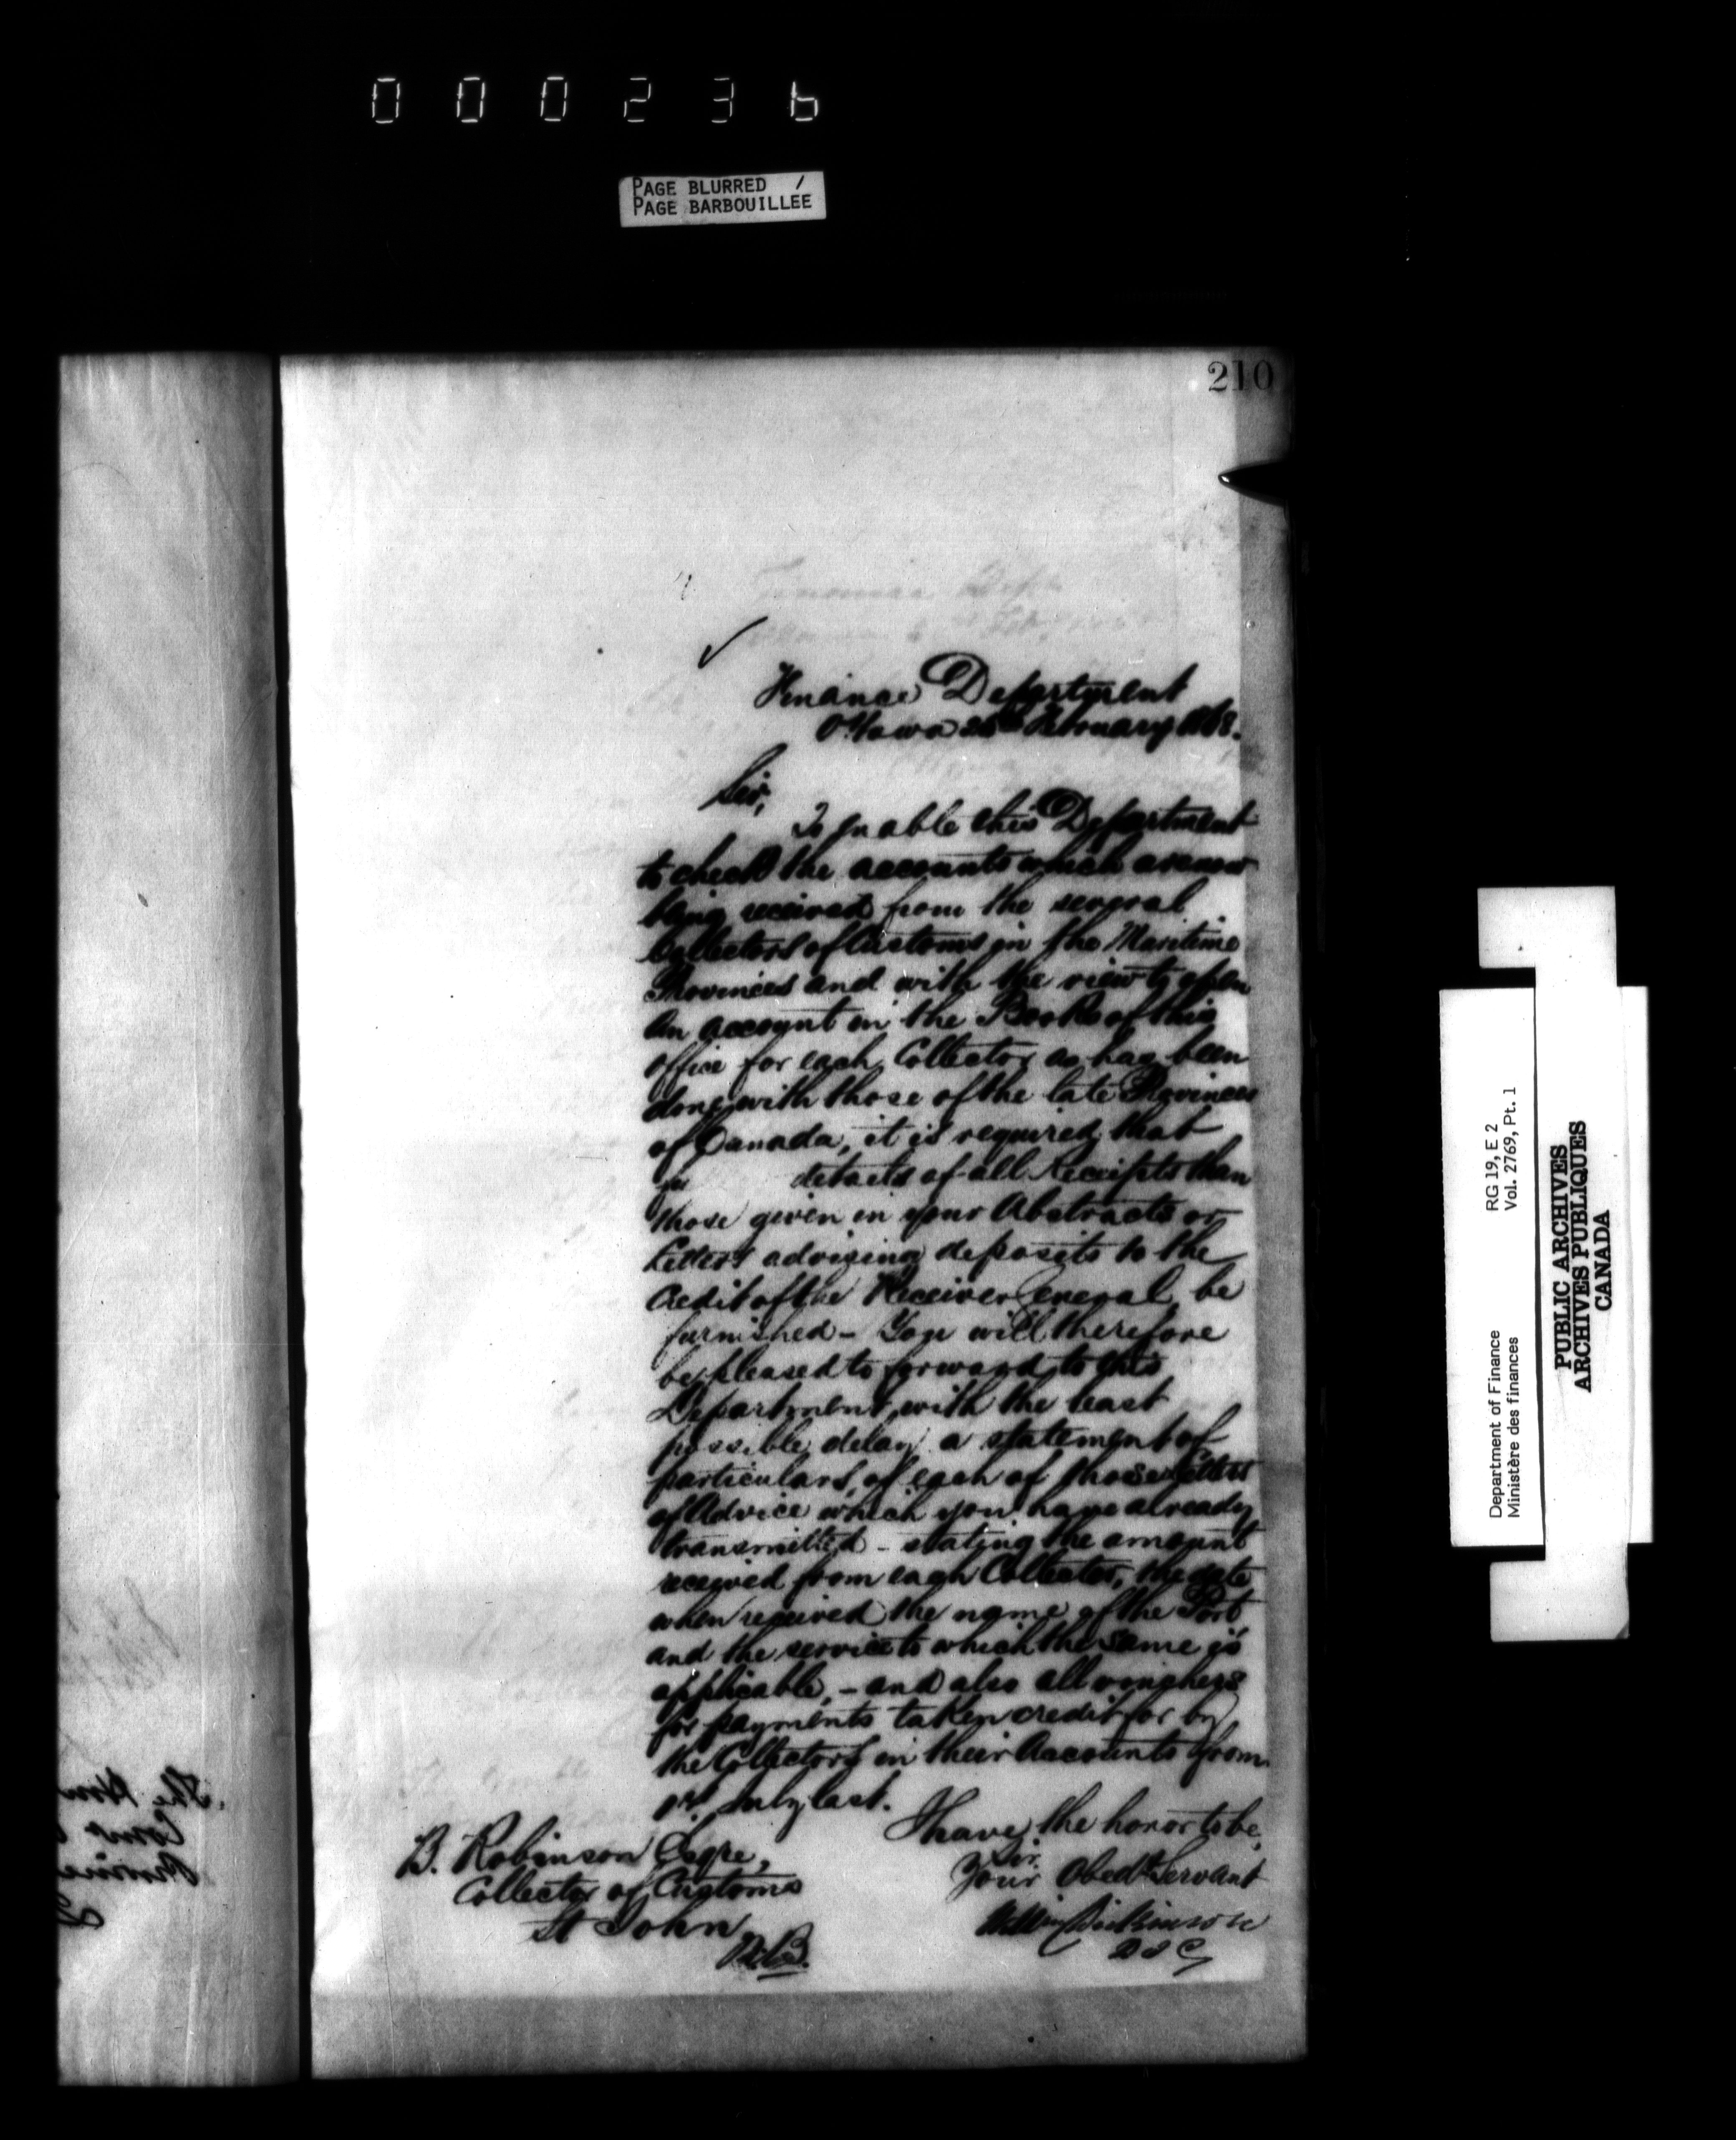 000236
PAGE BLURRED /
PAGE BARBOUILLEE
210
Finance Department
Ottawa February 1868.
Sir,
To enable this Department
to check the accounts which are now
being received from the several
Collectors of Customs in the Maritime
Provinces and with the view to open
an account in the Books of this
office for each Collector as has been
done with those of the late Provinces
of Canada, it is required that
details of all Receipts than
those given in your Abstracts or
Letters advising deposits to the
Credit of the Receiver General be
furnished - You will therefore
be pleased to forward to this
Department, with the least
possible delay a statement of
particulars of each of those Letters
of Advice which you have already
transmitted - stating the amount
received from each Collector, the date
when received the name of the Port
and the service to which the same is
applicable, - and also all vouchers
for payments taken credit for by
the Collectors in their Accounts from
1st July last.
I have the honor to be,
Sir,
Your Obedt Servant
Dickinson
D I G
B. Robinson Esqre,
Collector of Customs
St John
N.B.
The Hon
Department of Finance RG 19, E 2
Ministère des finances Vol. 2769, Pt. 1
PUBLIC ARCHIVES
ARCHIVES PUBLIQUES
CANADA